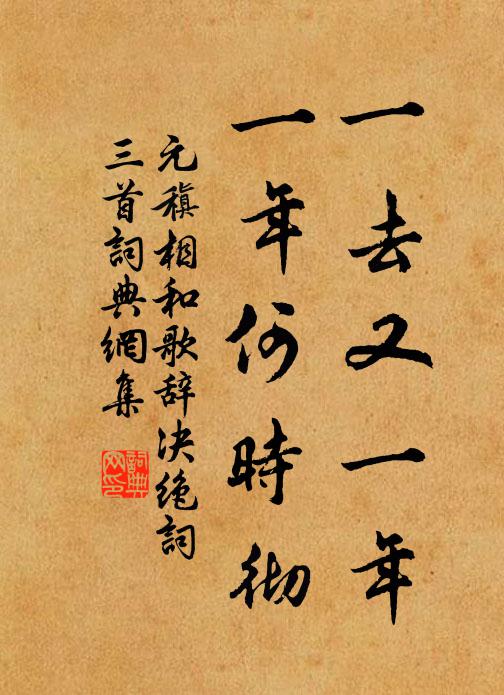 一去又一年
一年何時彻
元稹相和歌辞决绝詞
三首詞典網集
詞典網印